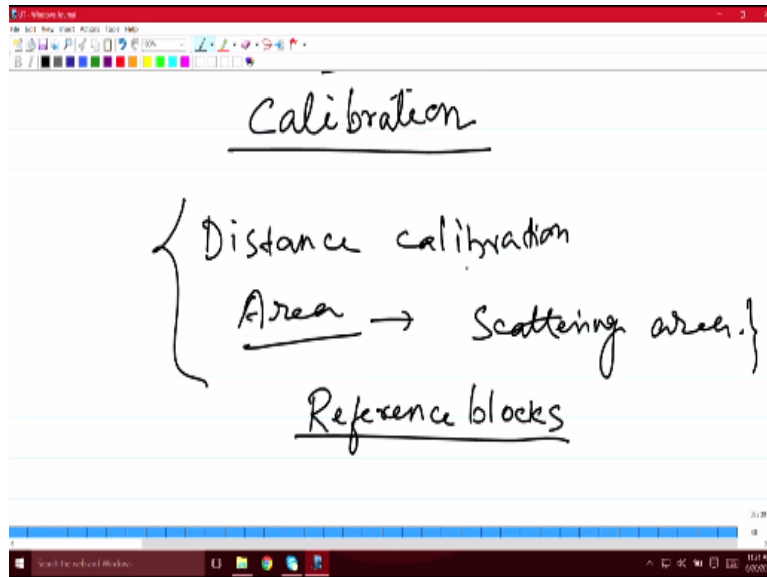 UT - Windows Journal
File Edit View Insert Actions Tools Help
Calibration
Distance calibration
Area → Scattering area.
Reference blocks
Search the web and Windows